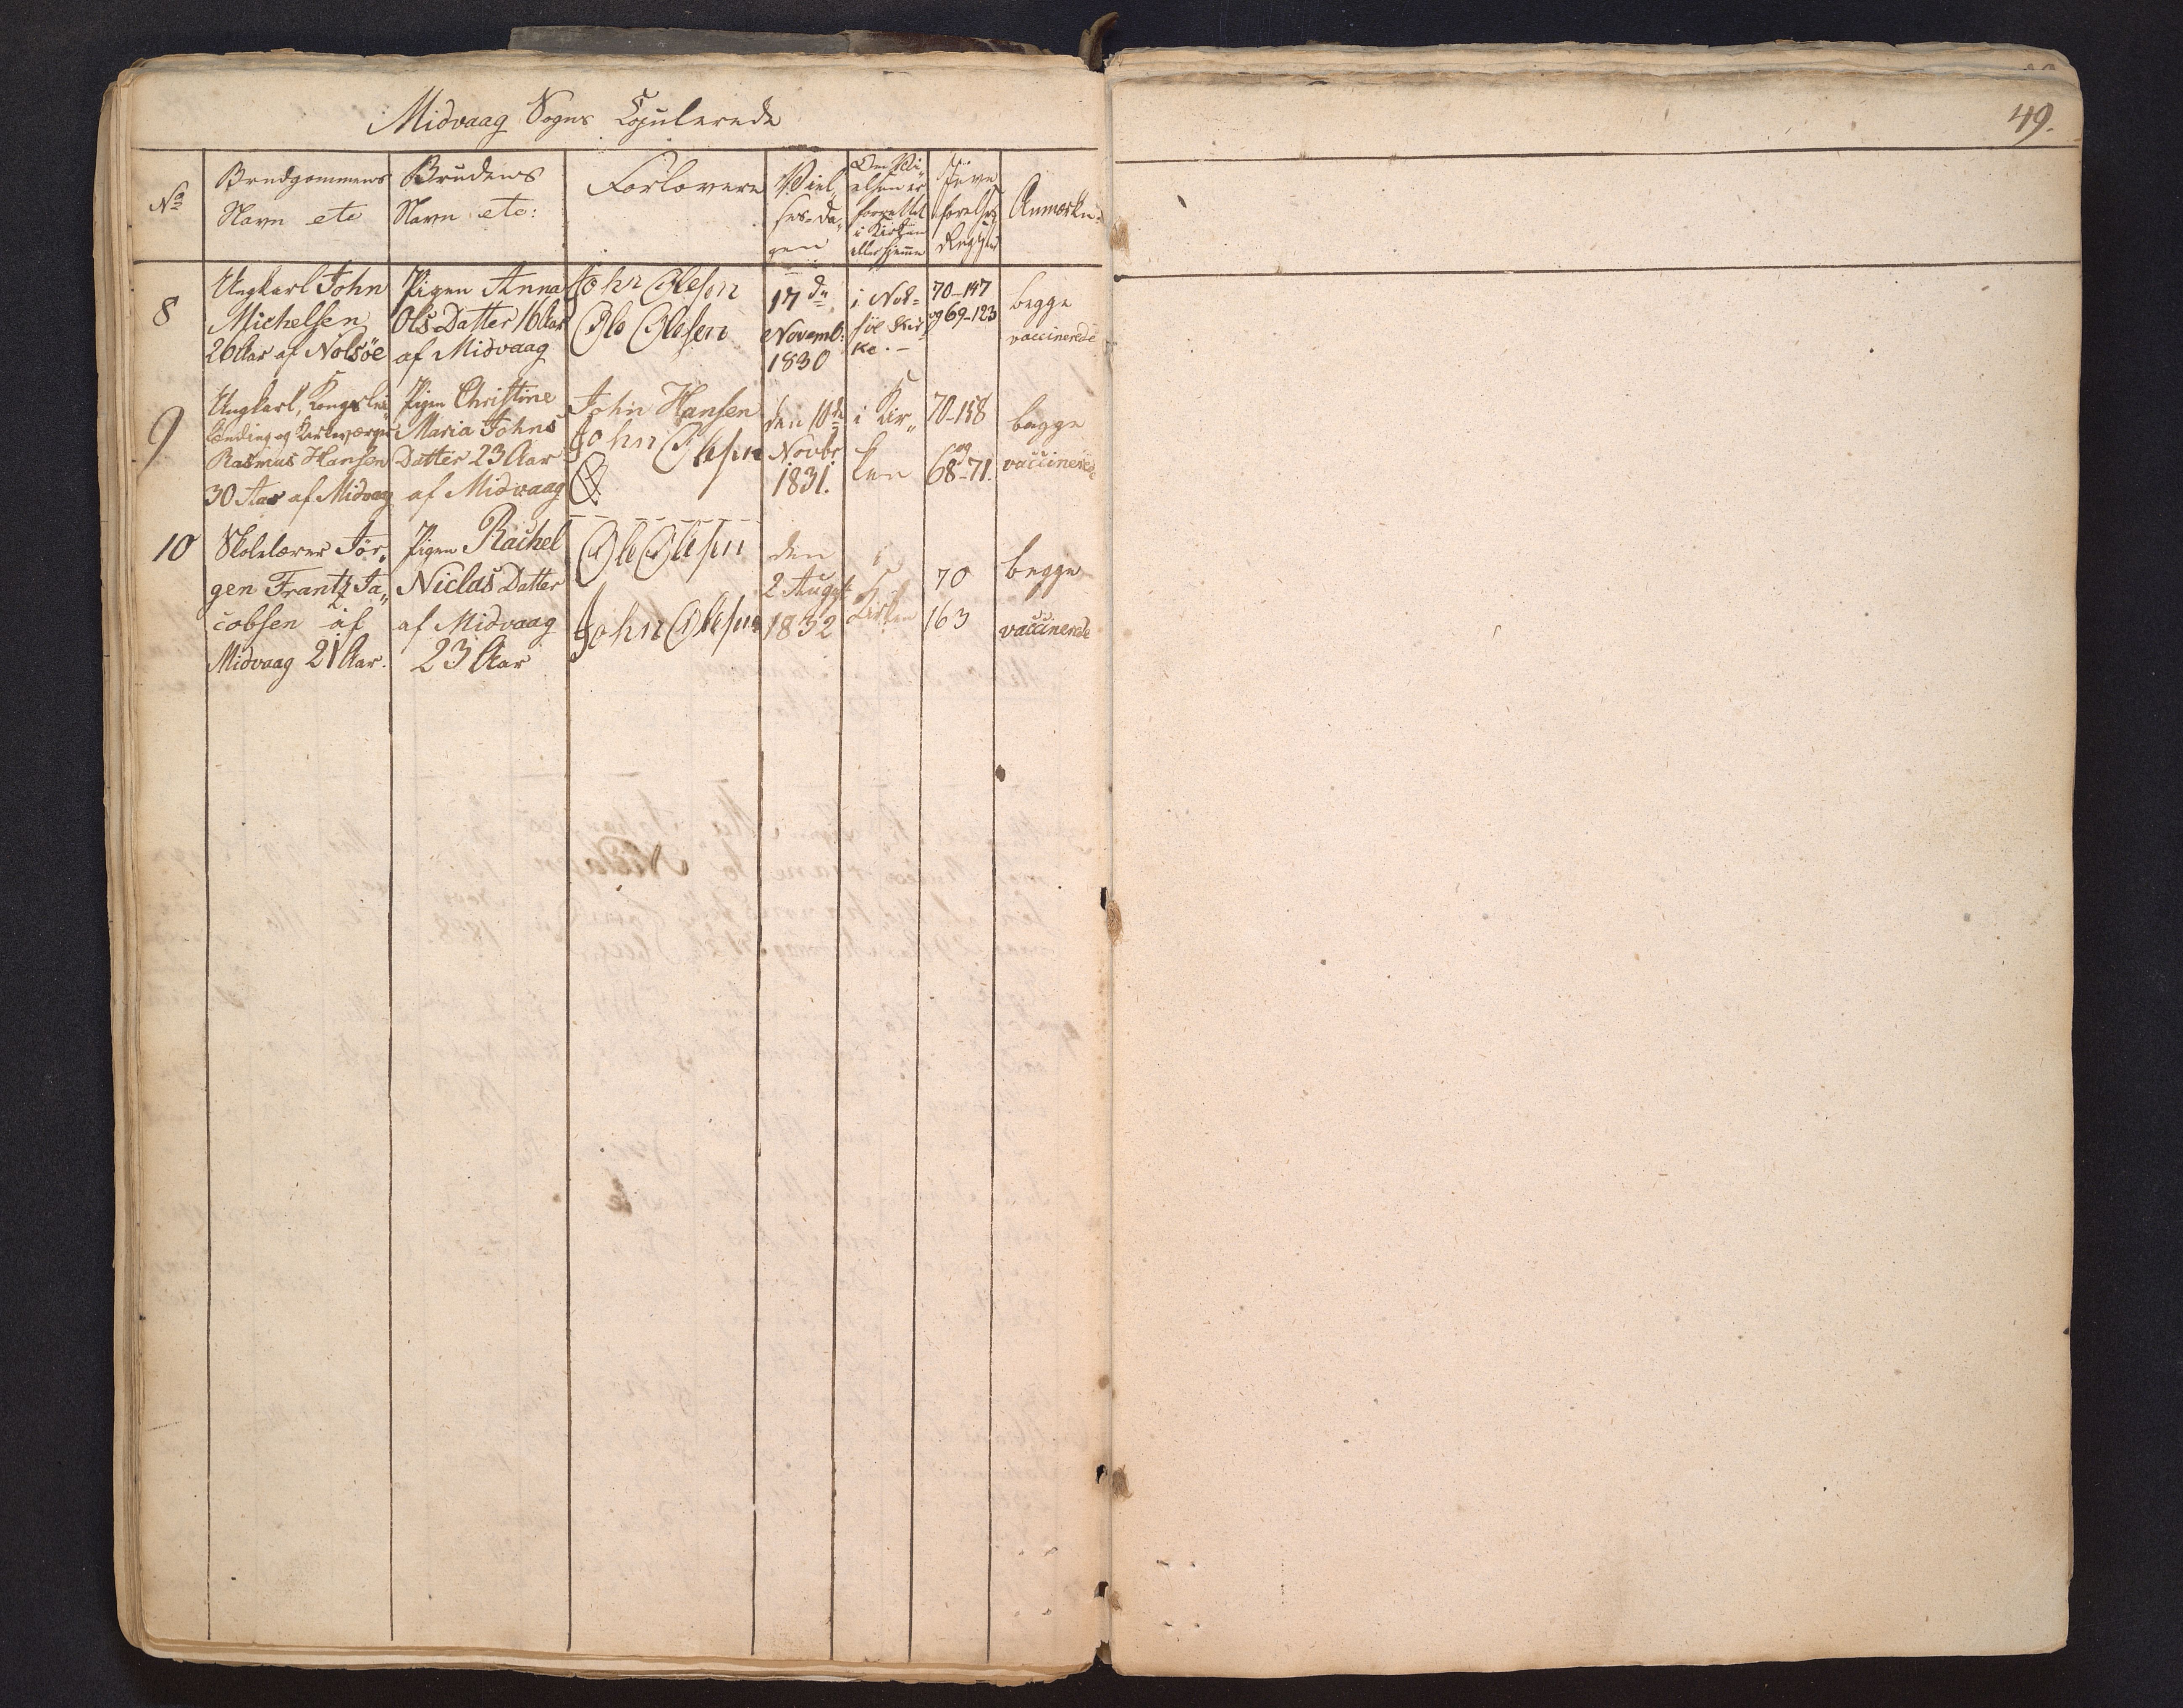 Midvaag Sogns Copulerede
49.
No
Brudgommens
Navn etc
Brudens
Navn etc:
Forlovere
Viel„
ses-Da„
gen
Om Vi„
elsen er
forrettet
i Kirken
eller hjemme
Jævn
førelses
Regist
Anmærkn:
8
Ungkarl John
Michelsen
26 Aar af Nolsöe
Pigen Anna
Ols Datter 16 Aar
af Midvaag
John Olesen
Ole Olesen
17 de
Novemb:
1830
i Nol=
söe Kir
ke. –
70–147
og 69–123
begge
vaccinerede
9
Ungkarl, Kongslei„
lænding og Kirkeværge
Rasmus Hansen
30 Aar af Midvaag
Pigen Christine
Maria Johns
Datter 23 Aar
af Midvaag
John Hansen
John Olesen
den 10de
Novbr
1831.
i Kir„
ken
70–158
og
68–71.
begge
vaccinerede
10
Skolelærer Jör„
gen Frantz Ja„
cobsen af
Midvaag 21 Aar.
Pigen Rachel
Niclas Datter
af Midvaag
23 Aar
Ole Olesen
John Olesen
den
2 August
1832
i
Kirken
70
163
begge
vaccinerede